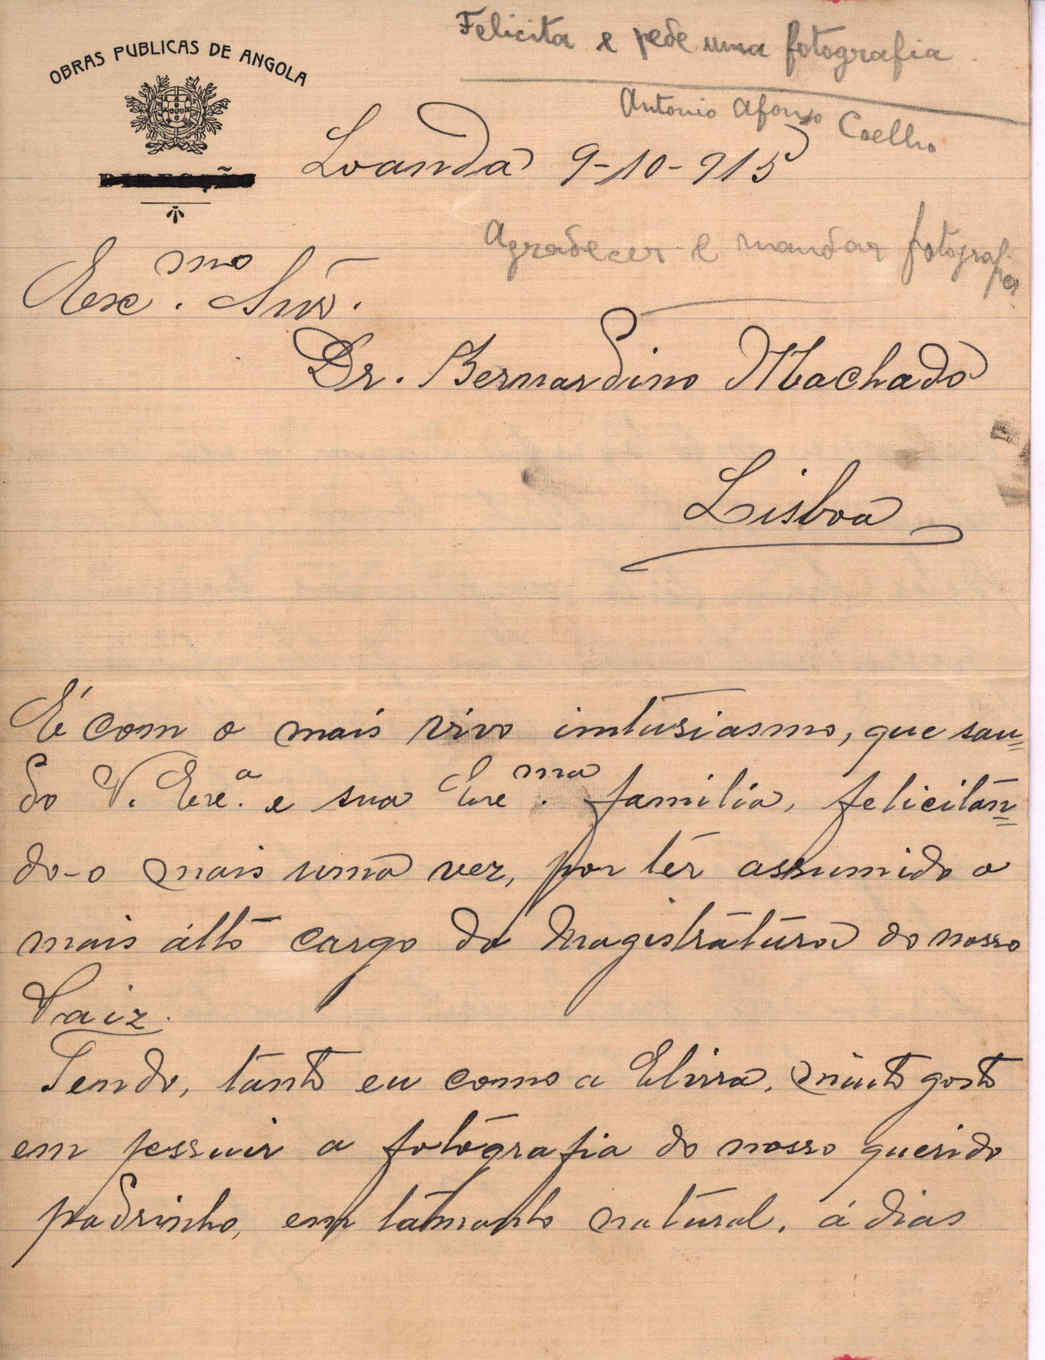 Felicita e pede uma fotografia
Antonio Afonso Coelho
OBRAS PUBLICAS DE ANGOLA
DIRECÇÃO
Loanda 9-10-915
Agradecer e mandar fotografia
Exc.mo Snr.
Dr. Bernardino Machado
Lisboa
É com o mais vivo imtusiasmo, que sau=
do V. Exc.a e sua Exc.ma familia, felicitan=
do-o mais uma vez, por têr assumido o
mais alto cargo da Magistratura do nosso
Paiz.
Tendo, tanto eu como a Elvira, muito gosto
em possuir a fotografia do nosso querido
padrinho, em tamanho natural, á dias